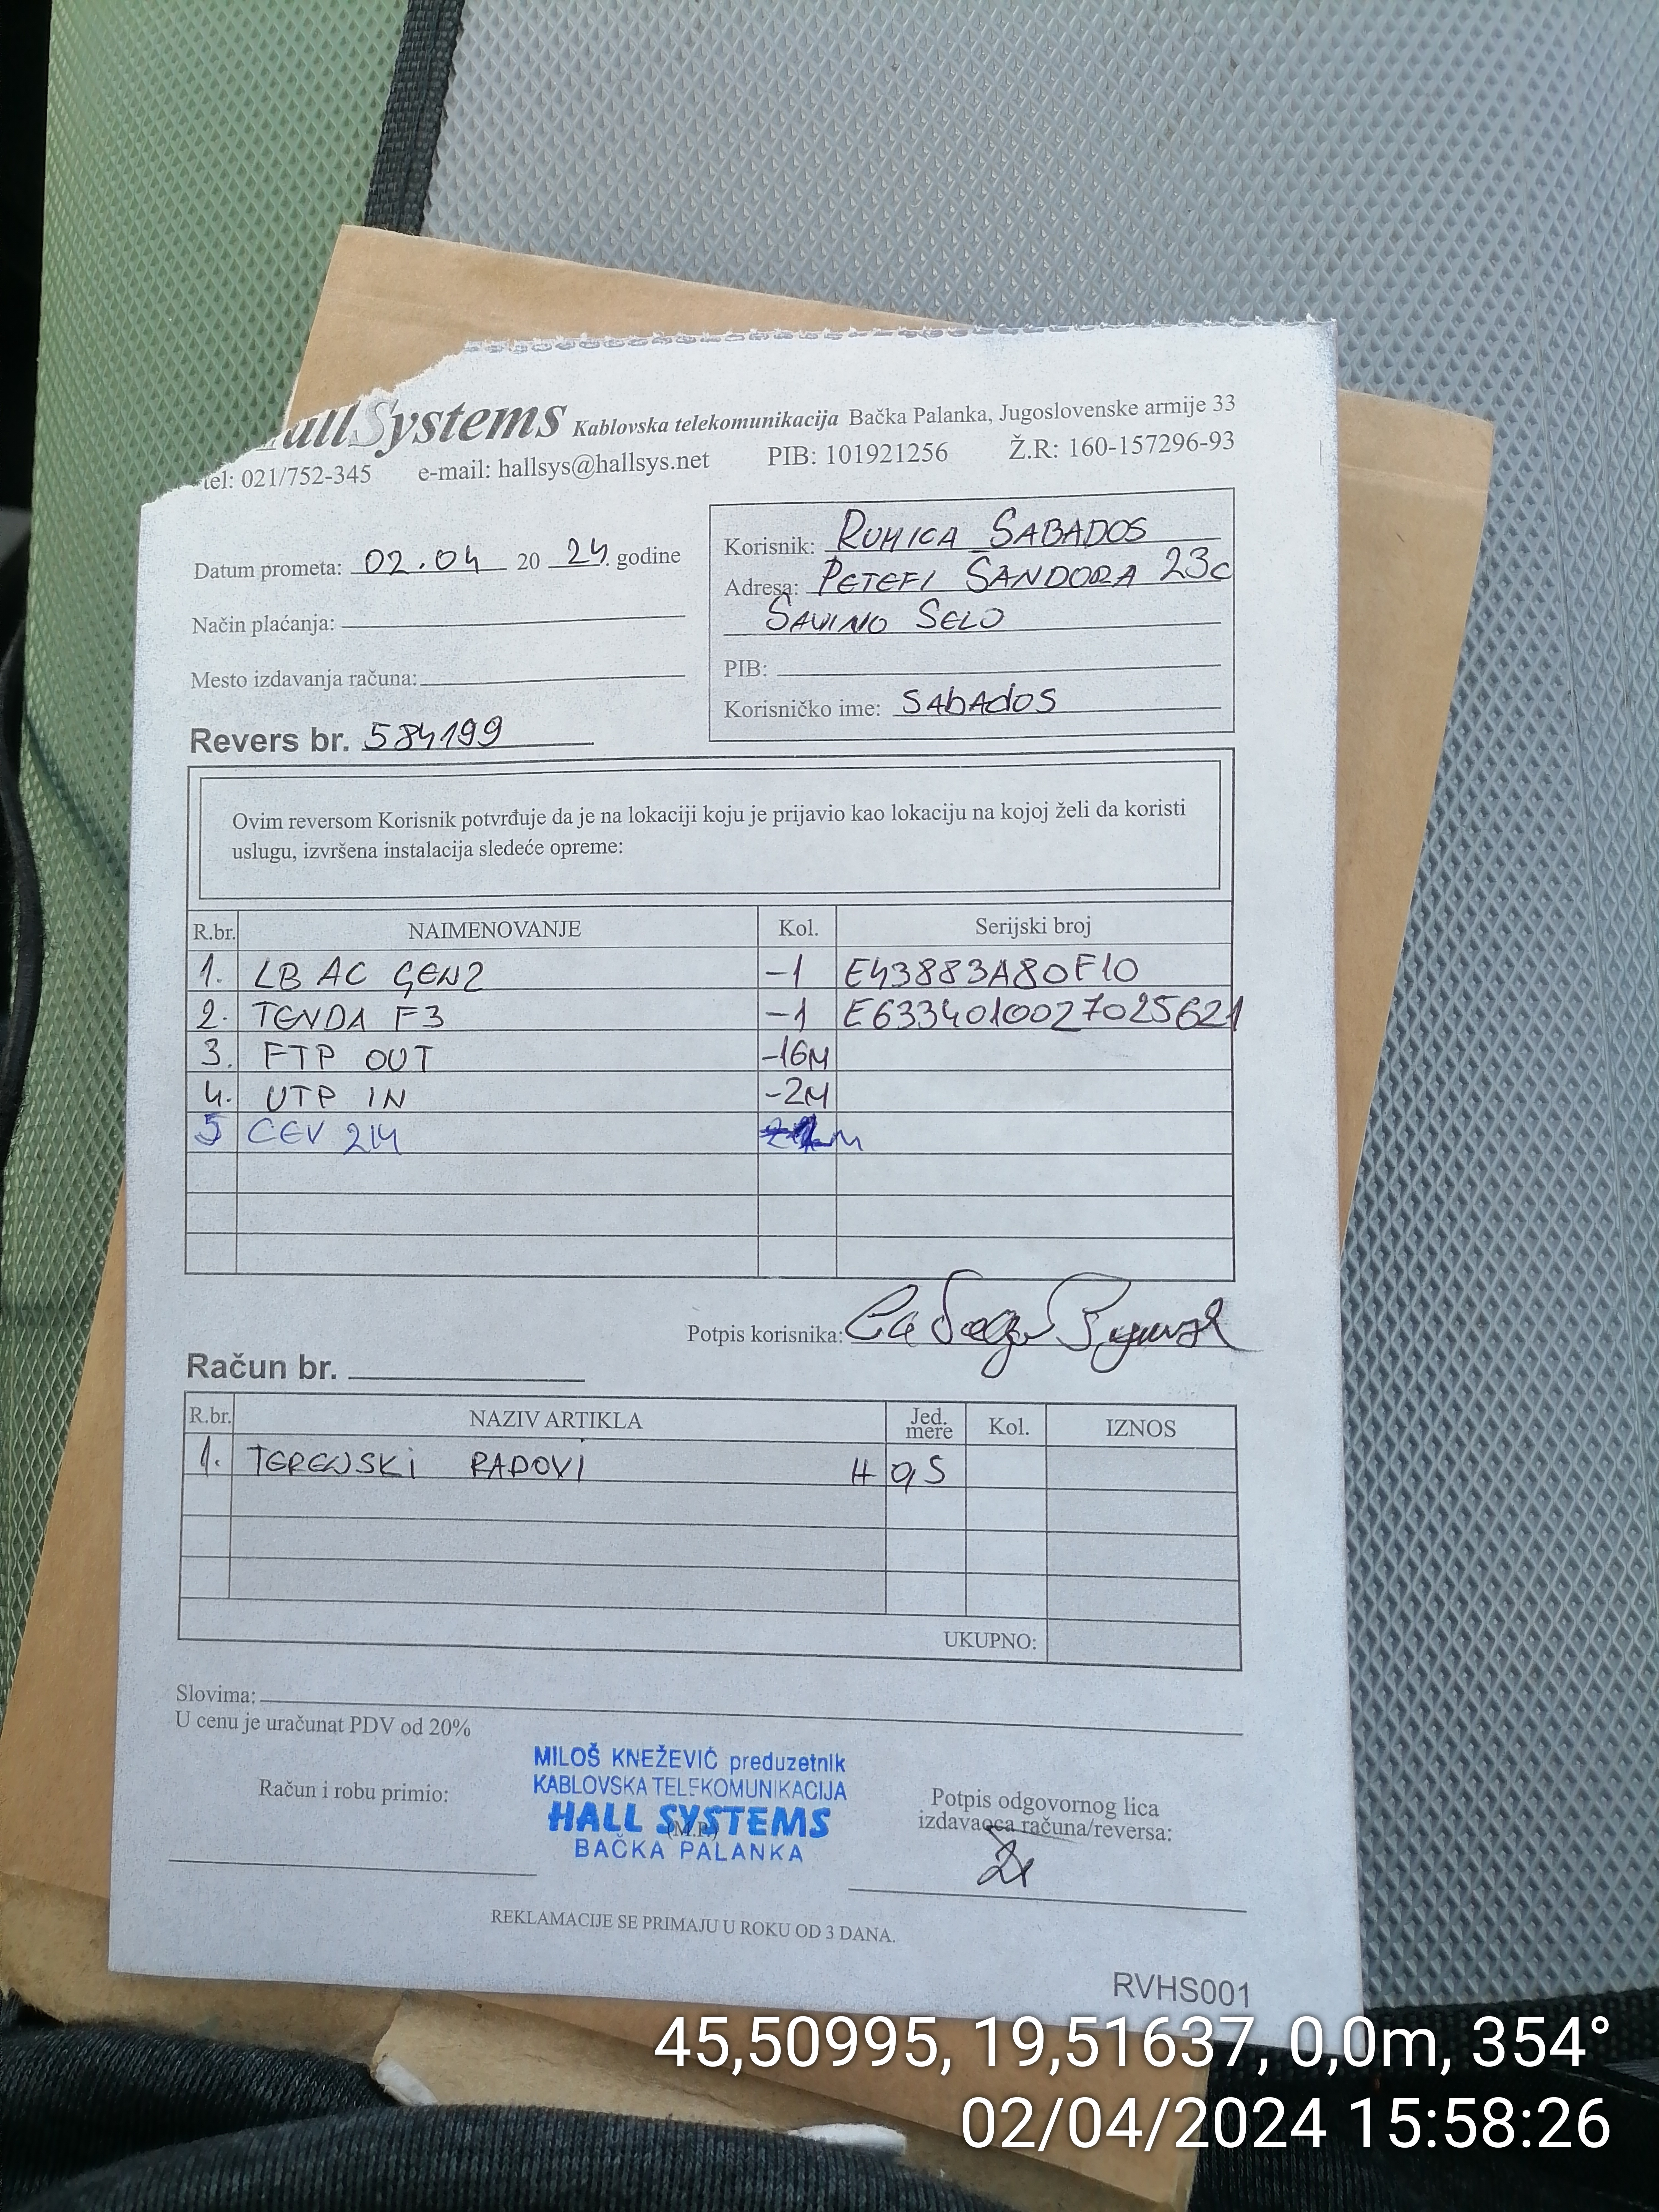 HallSystems Kablovska telekomunikacija Bačka Palanka, Jugoslovenske armije 33
tel: 021/752-345 e-mail: hallsys@hallsys.net PIB: 101921256 Ž.R: 160-157296-93
Datum prometa: 02.04 20 24. godine
Način plaćanja:
Mesto izdavanja računa:
Revers br. 584199
Korisnik: RUMICA SABADOS
Adresa: PETEFI SANDORA 23c
SAVINO SELO
PIB:
Korisničko ime: SAbAdOS
Ovim reversom Korisnik potvrđuje da je na lokaciji koju je prijavio kao lokaciju na kojoj želi da koristi
uslugu, izvršena instalacija sledeće opreme:
R.br. NAIMENOVANJE Kol. Serijski broj
1. LB AC GEN2 -1 E43883A80F10
2. TENDA F3 -1 E6334010027025621
3. FTP OUT -16M
4. UTP IN -2M
5 CEV 2M M
Potpis korisnika:
Račun br.
R.br. NAZIV ARTIKLA Jed. mere Kol. IZNOS
1. TERENSKI RADOVI H 0,5
UKUPNO:
Slovima:
U cenu je uračunat PDV od 20%
MILOŠ KNEŽEVIĆ preduzetnik
KABLOVSKA TELEKOMUNIKACIJA
HALL SYSTEMS
(M.P.)
BAČKA PALANKA
Račun i robu primio:
Potpis odgovornog lica
izdavaoca računa/reversa:
REKLAMACIJE SE PRIMAJU U ROKU OD 3 DANA.
RVHS001
45,50995, 19,51637, 0,0m, 354°
02/04/2024 15:58:26